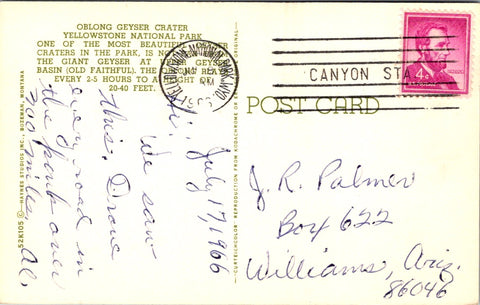 OBLONG GEYSER CRATER
YELLOWSTONE NATIONAL PARK
ONE OF THE MOST BEAUTIFUL
CRATERS IN THE PARK, IS NO
THE GIANT GEYSER AT GEYSER
BASIN (OLD FAITHFUL). THE PLAY
EVERY 2-5 HOURS TO A HEIGHT OF
20-40 FEET.
CANYON STA
4¢
POST CARD
Hi, July 17, 1966
We saw
this. Drove
our road in
the park over
300 miles.
J. R. Palmer
Box 622
Williams, Ariz.
86046
52K105 © HAYNES STUDIOS INC., BOZEMAN, MONTANA
CURTEICHCOLOR® REPRODUCTION FROM KODACHROME OR ORIGINAL